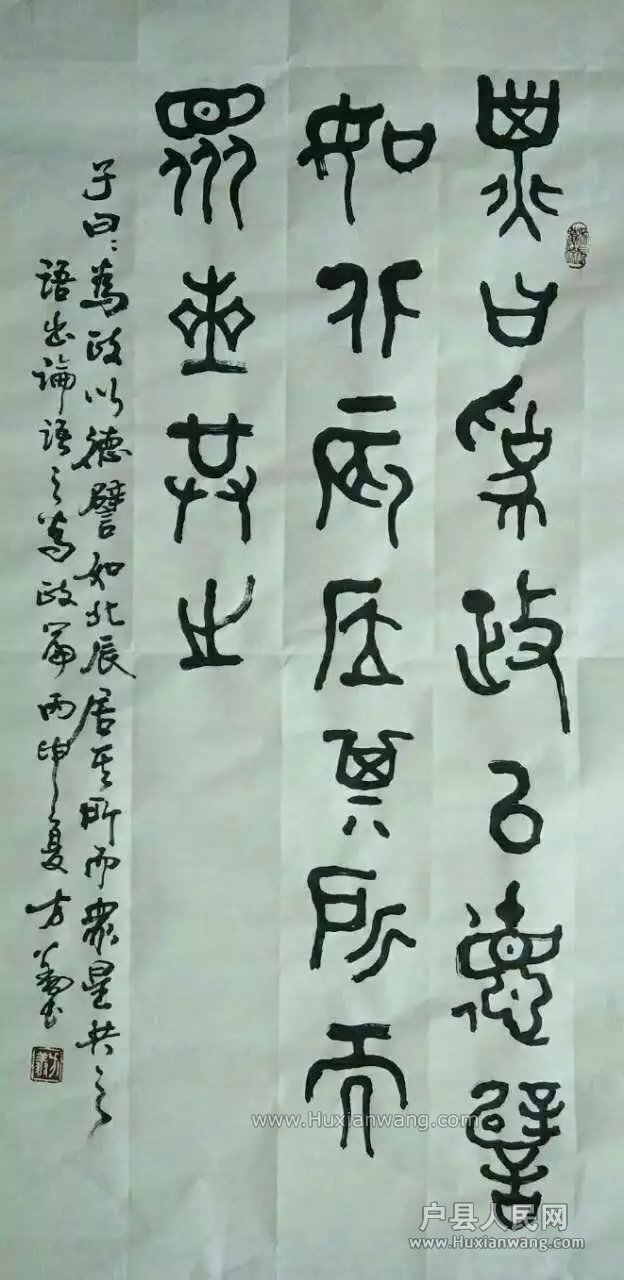 子曰为政以德譬
如北辰居其所而
眾星共之
子曰:為政以德譬如北辰居其所而眾星共之
語出論語之為政篇丙申夏方義書
www.Huxianwang.com
户县人民网
www.Huxianwang.com